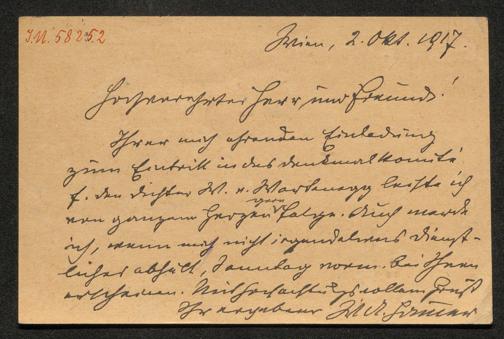 I.N. 58252
Wien, 2. Okt. 1917.
Hochverehrter Herr und Freund!
Ihrer mich ehrenden Einladung
zum Eintritt in das Denkmalkomité
f. den Dichter W. v. Wartenegg leiste ich
von ganzem Herzen gern Folge. Auch werde
ich, wenn mich nicht irgendetwas Dienst-
liches abhält, Sonntag vorm. bei Ihnen
erscheinen. Mit hochachtungsvollem Gruß
Ihr ergebener